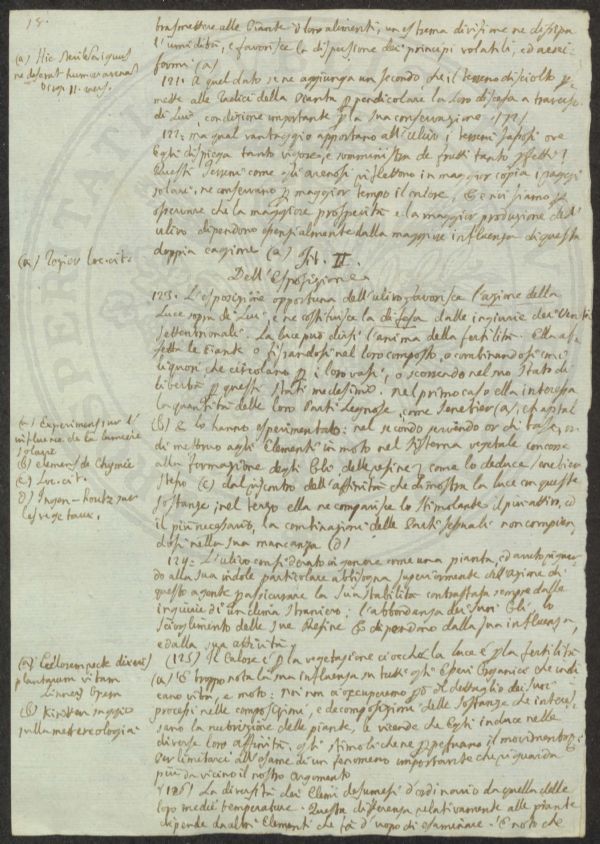 18.
trasmettere alle Piante i loro alimenti, un estrema divisione ne dissipa
l'umidità, e favorisce la dispersione dei principi volatili, ed aeri-
formi (a)
121. A quel dato se ne aggiunga un secondo che il terreno disciolto per-
mette alle Radici della Pianta perpendicolare la loro discesa a traverso
di Lui, condizione importante per la sua conservazione
122. ma qual vantaggio apportano all'ulivo i terreni sassosi ove
Egli dispiega tanto vigore, e somministra de frutti tanto perfetti?
Questi Terreni come gli arenosi riflettono in maggior copia i raggi
solari, ne conservano per maggior tempo il calore, E noi siamo per
osservare che la maggiore prosperità e la maggior produzione del
ulivo dipendono essenzialmente dalla maggiore influenza di questa
doppia cagione (a) Art. II.
Dell'Esposizione
123. L'esposizione opportuna dell'ulivo favorisce l'azione della
Luce sopra di Lui, e ne costituisce la difesa dalle ingiurie dei Venti
settentrionali. La luce può dirsi l'anima della fertilità. Ella
le Piante o fissandosi nel loro composto, o combinandosi coi
liquori che circolano per i loro vasi, o scorrendo nel suo Stato di
libertà per questi stati medesimi. nel primo caso ella interessa
la quantità delle loro Parti Legnose, come Senebier (a), chaptal
(b) lo hanno esperimentato: nel secondo
agli Elementi in moto nel sistema vegetale concorre
alla formazione degli Olj, delle resine come lo deduce Senebier
stesso (c) dal riscontro dell'affinità che dimostra la luce con queste
sostanze; nel terzo ella ne comparisce lo Stimolante il più attivo, ed
il più necessario, la combinazione delle Parti sessuali non compien-
dosi nella sua mancanza (d)
124. L'ulivo considerato in genere come una pianta, ed avuto riguar-
do alla sua indole particolare abbisogna superiormente dell'azione di
questo agente per assicurare la sua stabilità contrastata sempre dalle
ingiurie di un clima straniero: l'abbondanza dei suoi Olj, lo
scioglimento delle sue Resine dipendono dalla sua influenza,
e dalla sua attività
(125) Il Calore è per la vegetazione ciocchè la luce è per la fertilità
(a) È troppo nota la sua influenza in tutti gli Esseri Organici che indi-
cano vita, e moto: noi non ci occuperemo del dettaglio dei suoi
processi nelle composizioni, e decomposizioni delle sostanze che interes-
sano la nutrizione delle piante, le vicende che Egli induce nelle
diverse loro affinità, gli stimoli che ne perpetuano il movimento
per limitarci all'esame di un fenomeno importante che riguarda
più da vicino il nostro argomento
(126) La diversità dei Climi desumesi d'ordinario da quella delle
loro medie temperature. Questa differenza relativamente alle piante
dipende da altri Elementi che fà d'uopo di esaminare. È noto che
(a) Hic
ne deserat humor arenas
Virg.
(a) Rozier loc. cit.
(a) Experiment sur l'
influence de la lumiere
solaire
(b) elemens de Chymie
(c) Loc. cit.
(d) Ingen-Houtz sur
les vegetaux.
(a)
plantarum vitam
(b) Kirwan saggio
sulla metereologia